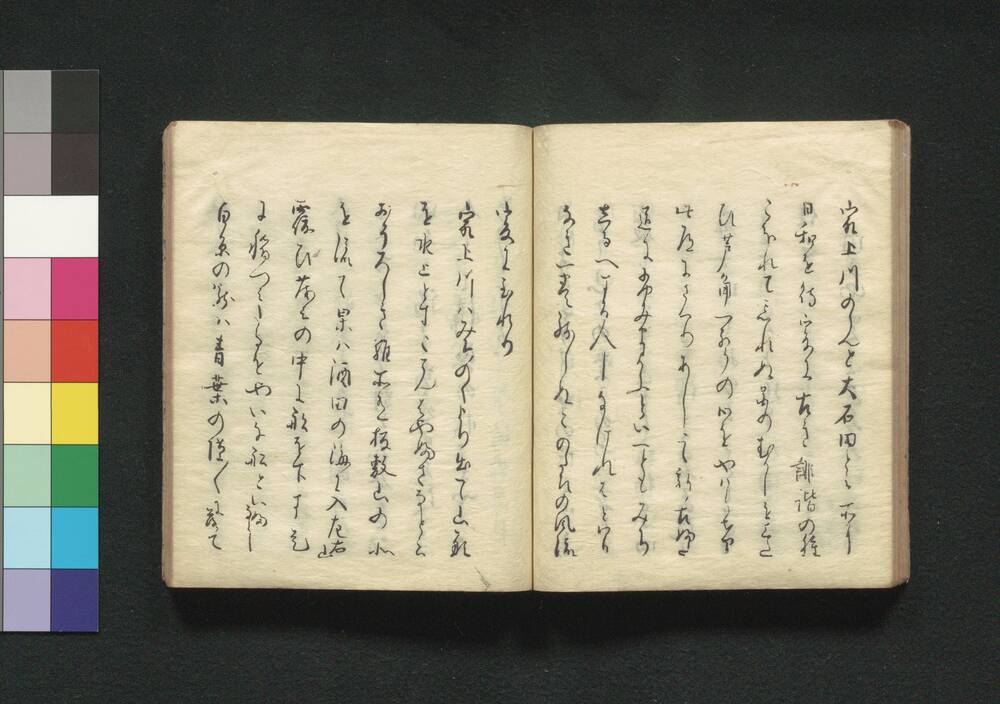 最上川のらんと大石田と云所に
日和を待爰に古き誹諧の種
こほれて忘れぬ花のむかしをした
ひ芦角一声の心をやはらけ
此道にさくりあしして新古ふた
道にふみまよふといへともみち
しるへする人しなけれはとわり
なき一巻残しぬこのたひの風流
爰に至れり
最上川ハみちのくより出て山形
を水上とすこてんはやふさなと云
おそろしき難所有板敷山の北
を流て果ハ酒田の海に入左右山
覆ひ茂みの中に船を下す是
に稲つみたるをやいな船といふならし
白糸の滝ハ青葉の隙〱に落て